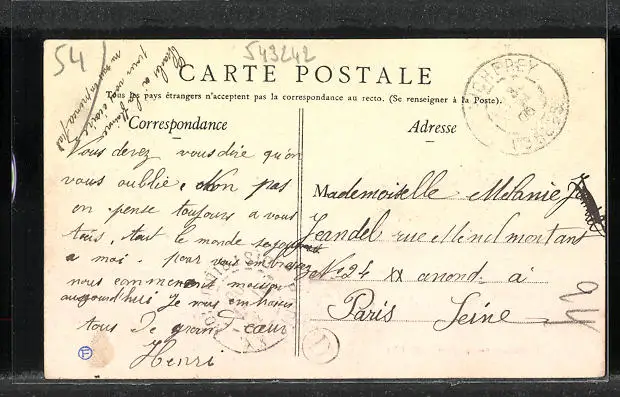 54
543242
CARTE POSTALE
Tous les pays étrangers n'acceptent pas la correspondance au recto. (Se renseigner à la Poste).
Correspondance
Adresse
Vous devez vous dire qu'on
vous oublie. Non pas
on pense toujours a vous
tous, tout le monde se joint
a moi. pour vous embrasser
nous commencent
aujourd'hui Je vous embrasse
tous De grand cœur
Henri
Mademoiselle Melanie
Jeandel rue Menilmontant
No 24 XX arrond. à
Paris Seine
D